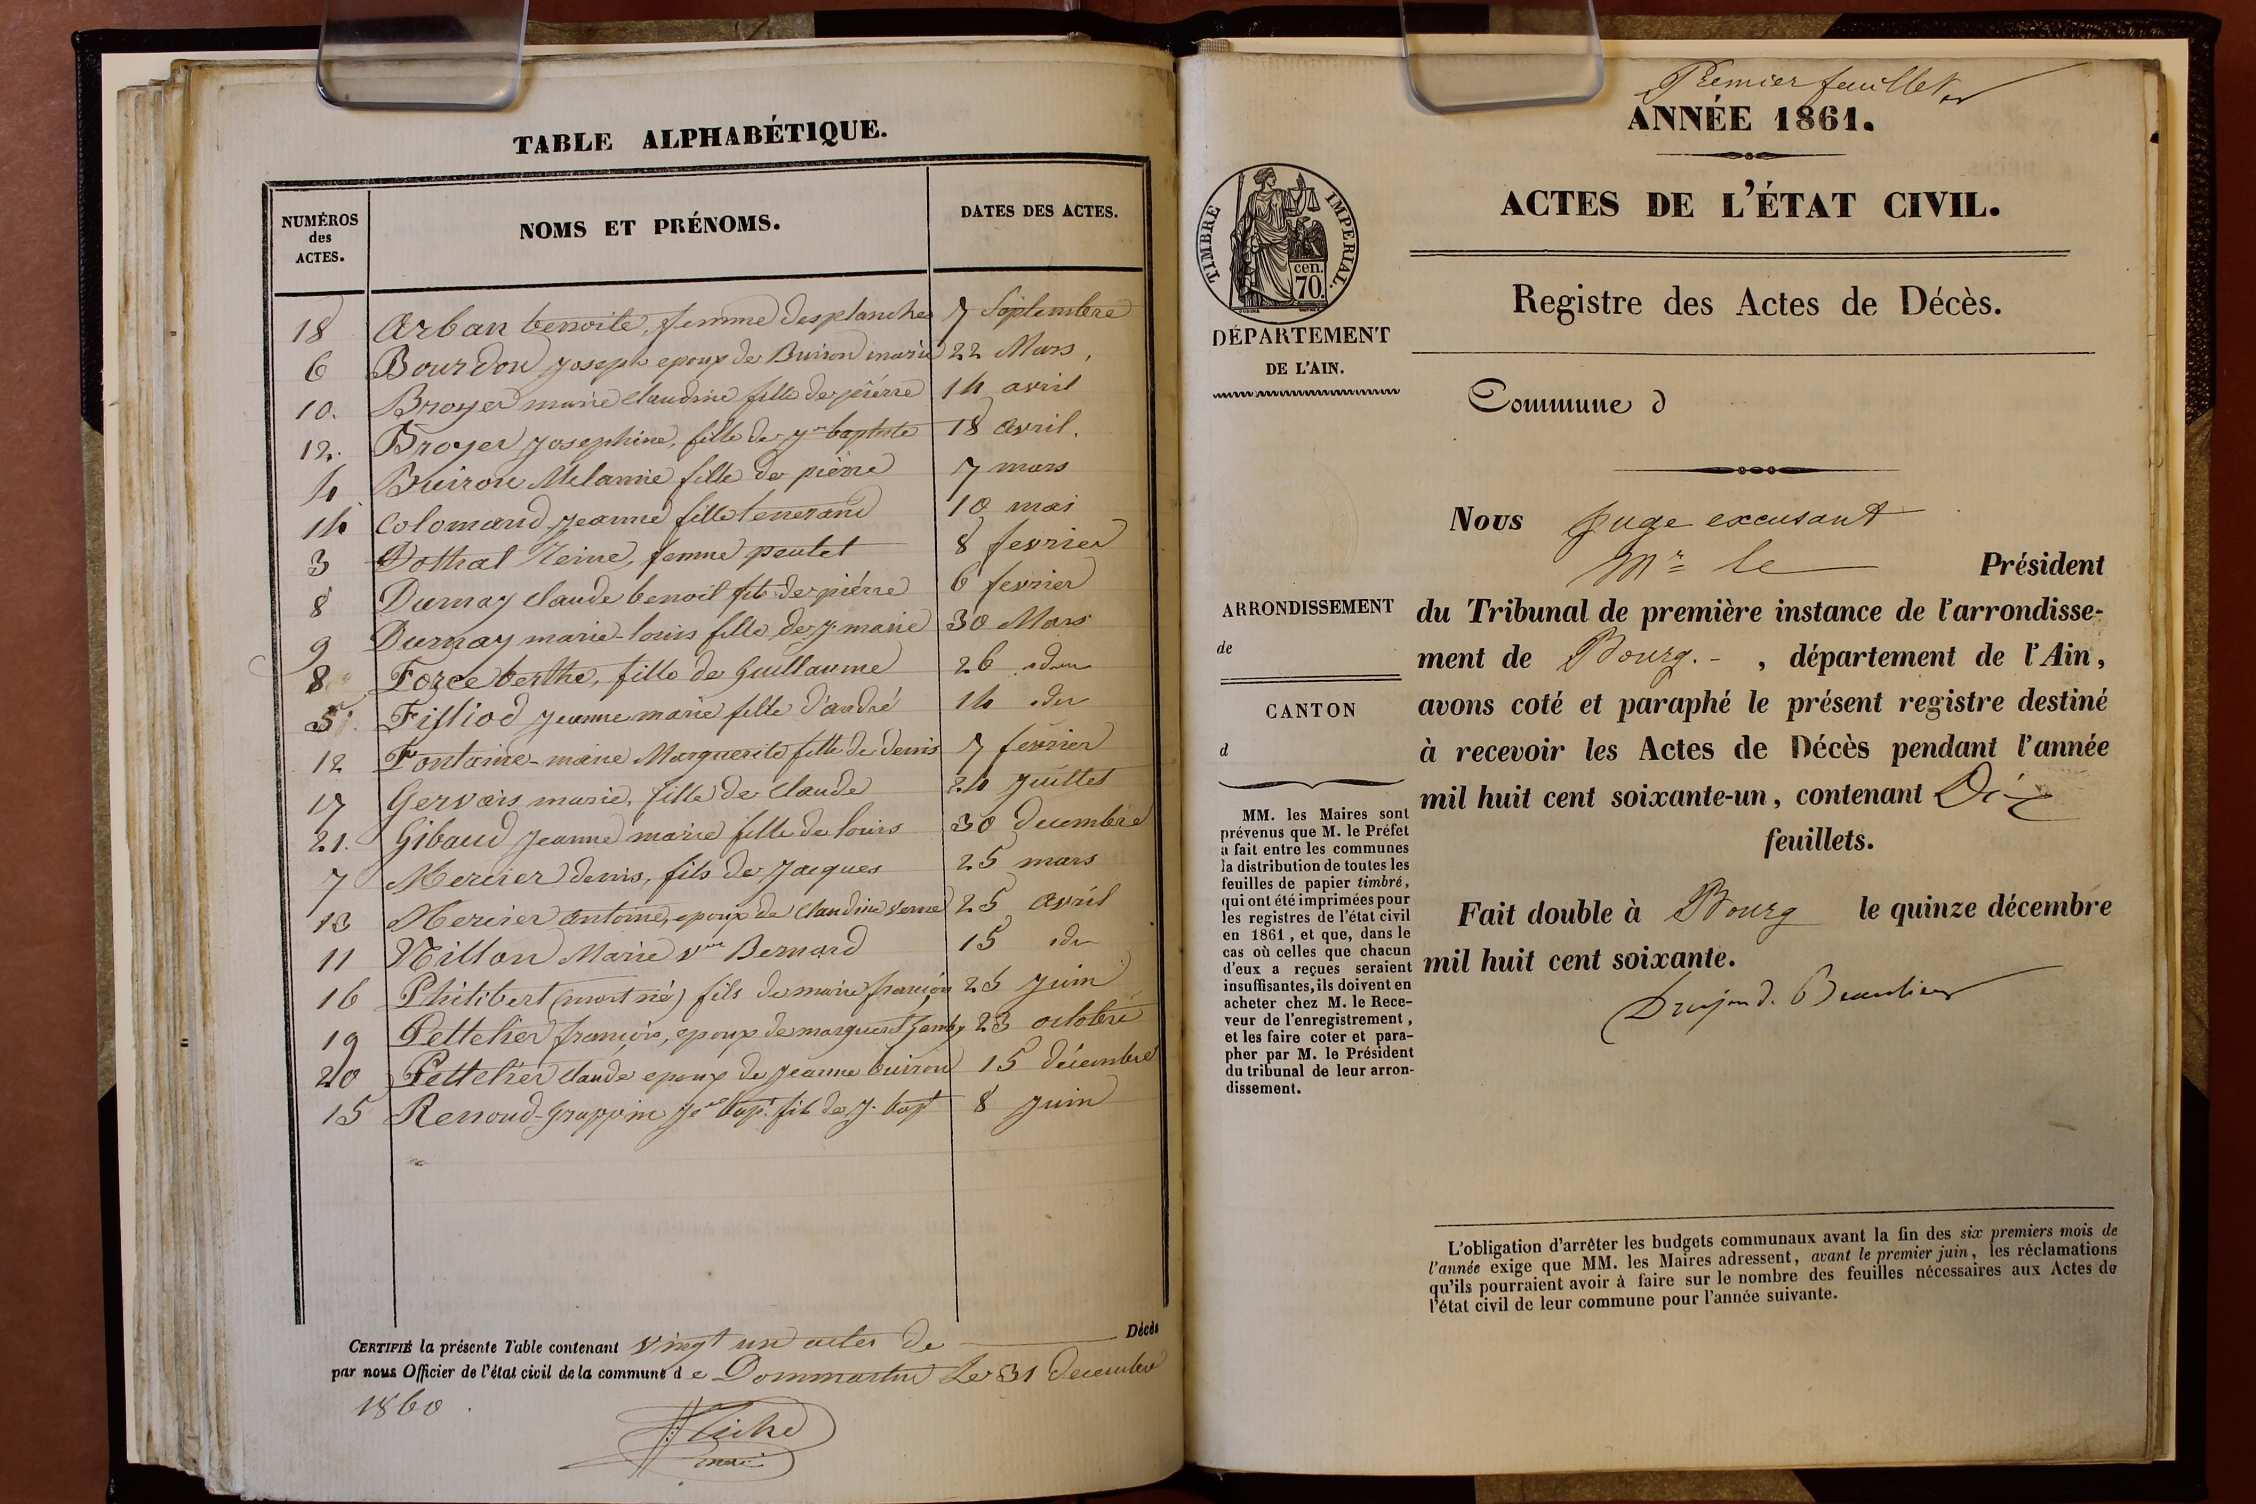 TABLE ALPHABÉTIQUE.
NUMÉROS des ACTES. NOMS ET PRÉNOMS. DATES DES ACTES.
18 Arban benoite, femme desplanches 7 Septembre
6 Bourdon joseph epoux de Buiron marie 22 Mars,
10. Broyer marie Claudine fille de pierre 14 avril
12. Broyer josephine, fille de jn baptiste 18 avril.
4 Buiron Melanie fille de pierre 7 mars
14 Colomand jeanne fille tenerand 10 mai
3 Dothal Reine, femme poutet 8 fevrier
8 Durnay claude benoit fils de pierre 6 fevrier
9 Durnay marie-louis fille de j. marie 30 Mars
8 Force berthe, fille de Guillaume 26 idem
5 Filliod jeanne marie fille d'andré 14 idem
12 Fontaine-marie Marguerite fille de denis 7 fevrier
17 Gervais marie, fille de Claude 24 juillet
21. Gibaud jeanne marie fille de louis 30 decembre
7 Mercier denis, fils de jacques 25 mars
13 Mercier antoine, epoux de Claudine verne 25 avril
11 Nillon Marie vve Bernard 15 idem
16 Philibert (mort né) fils de marie françoise 23 juin
19 Pelletier françois, epoux de marguerit jamby 23 octobre
20 Pelletier claude epoux de jeanne buiron 15 décembre
15 Renoud-grappin jn bapt. fils de j. bapt 8 juin
CERTIFIÉ la présente Table contenant vingt un actes de Décès
par nous Officier de l'état civil de la commune d e Dommartin Le 31 Decembre
1860.
Premier feuillet
ANNÉE 1861.
ACTES DE L'ÉTAT CIVIL.
Registre des Actes de Décès.
TIMBRE IMPERIAL.
cen.
70.
DÉPARTEMENT
DE L'AIN.
Commune d
Nous juge excusant
Mr le Président
du Tribunal de première instance de l'arrondisse-
ment de Bourg.-, département de l'Ain,
avons coté et paraphé le présent registre destiné
à recevoir les Actes de Décès pendant l'année
mil huit cent soixante-un, contenant Dix
feuillets.
Fait double à Bourg le quinze décembre
mil huit cent soixante.
ARRONDISSEMENT
de
CANTON
d
MM. les Maires sont
prévenus que M. le Préfet
a fait entre les communes
la distribution de toutes les
feuilles de papier timbré,
qui ont été imprimées pour
les registres de l'état civil
en 1861, et que, dans le
cas où celles que chacun
d'eux a reçues seraient
insuffisantes, ils doivent en
acheter chez M. le Rece-
veur de l'enregistrement,
et les faire coter et para-
pher par M. le Président
du tribunal de leur arron-
dissement.
L'obligation d'arrêter les budgets communaux avant la fin des six premiers mois de
l'année exige que MM. les Maires adressent, avant le premier juin, les réclamations
qu'ils pourraient avoir à faire sur le nombre des feuilles nécessaires aux Actes de
l'état civil de leur commune pour l'année suivante.